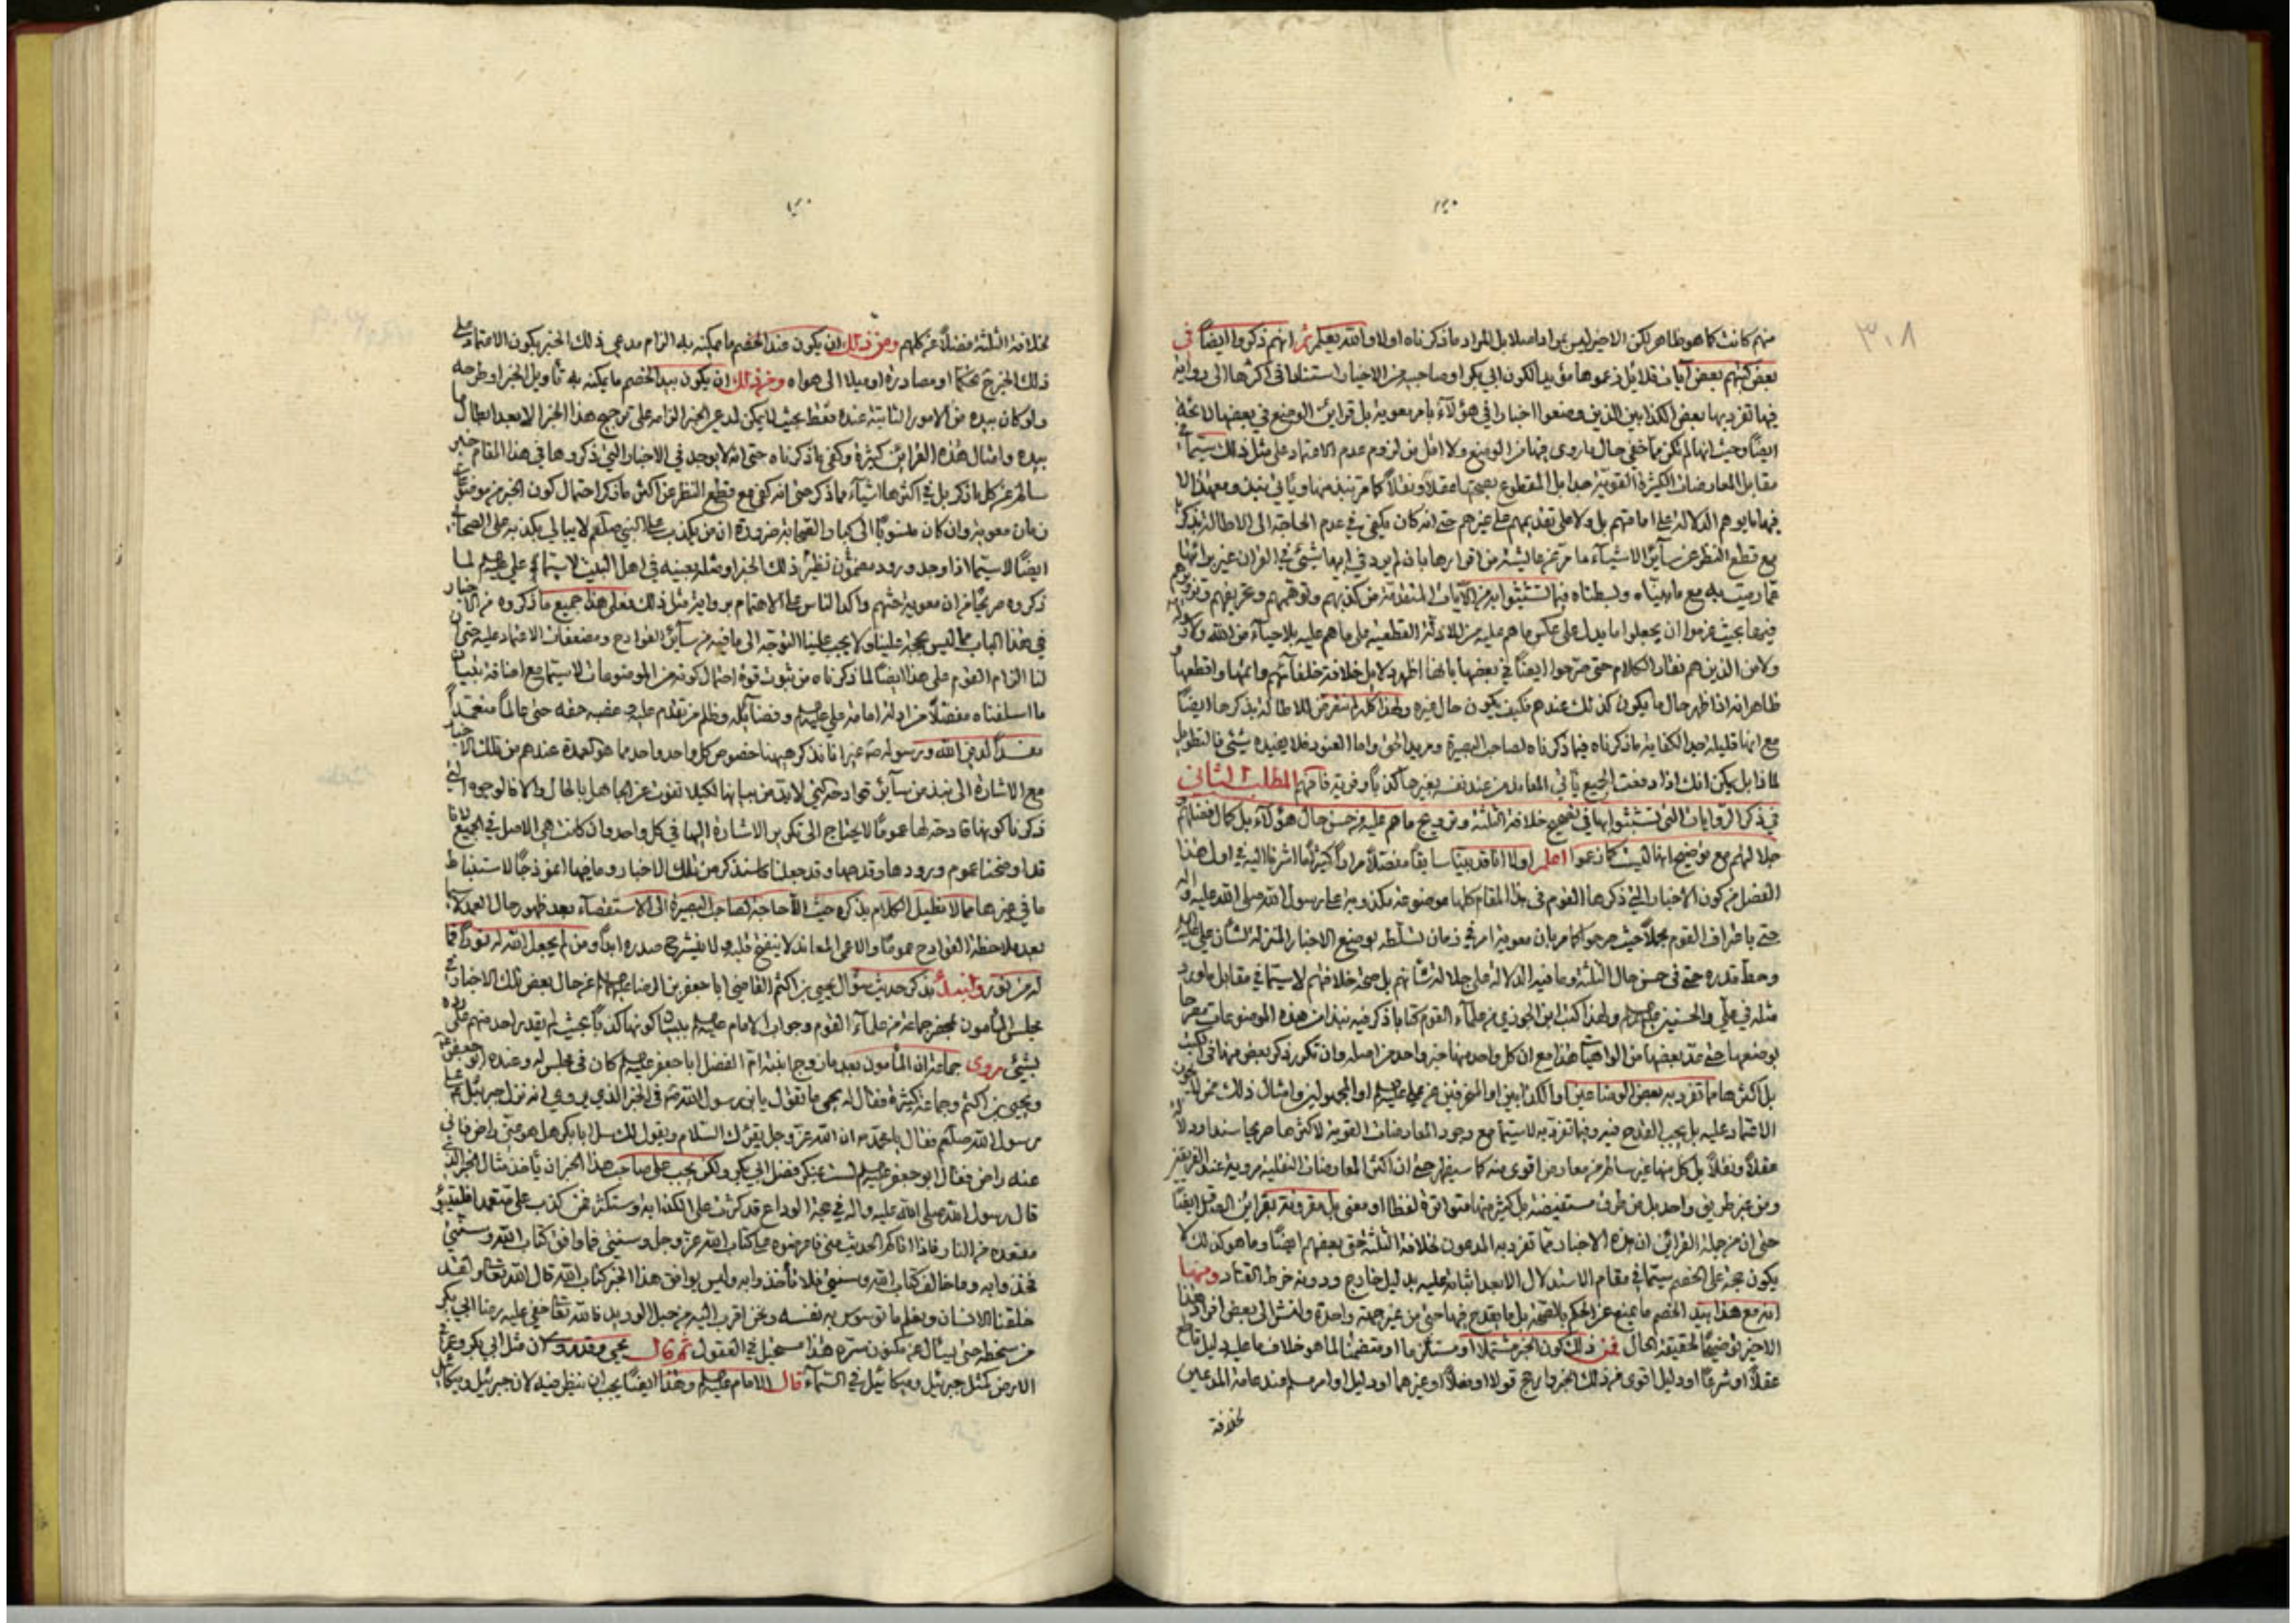 ٣٠٨
منهم كانت كما هو ظاهر لكن الاخير ليس بمراد اصلا بل المراد ما ذكرناه اولا والله يعلم ثم انهم ذكروا ايضاً في
بعض كتبهم بعض آيات قلائل زعموها مؤيدا لكون ابي بكر او صاحبيه من الاخيار استنادا في اكثرها الى رواية
فيها تفرد بها بعض الكذابين الذين وضعوا اخبارا في هؤلاء بامر معوية بل قرائن الوضع في بعضها لائحة
ايضاً وحيث انها لم تكن مما خفي حال ما روى فيها من الوضع ولا اقل من لزوم عدم الاعتماد على مثل ذلك سيما في
مقابل المعارضات الكثيرة القوية جدا بل المقطوع بصحتها عقلاً ونقلاً كما مر نبذ منها ويأتي نبذ ومع هذا لا
فيها ما يوهم الدلالة على امامتهم بل ولا على تقديمهم على غيرهم حتى انه كان يكفي في عدم الحاجة الى الاطالة بذكر
مع قطع النظر عن سائر الاشياء ما مر عن عايشة من اقرارها بان لم يرد في ابيها شيئ في القران غير برائتها
عما رميت به مع ما بيناه وبسطناه فيما تشبثوا به من الآيات المتقدمة من كذبهم وتوهمهم وتحريفهم
فيها بحيث عزموا ان يجعلوا ما يدل على عكس ما هم عليه من الادلة القطعية على ما هم عليه بلا حياء من الله ولا
ولا من الذين هم نقاد الكلام حتى صرحوا ايضاً في بعضها بانها اظهر دلائل خلافة خلفائهم وامتنها واقطعها
ظاهر انه اذا ظهر حال ما يكون كذلك عندهم فكيف يكون حال غيره ولهذا كله لم نتعرض للاطالة بذكرها ايضاً
مع انها قليلة جدا لكفاية ما ذكرناه فيما ذكرناه لصاحب البصيرة ومريد الحق واما العنود فلا يفيده شيئ فالتطويل
لماذا بل يمكن انك اذا دفعت الجميع يأتي المعاند من عند نفسه بغيرها كذباً وفرية فافهم المطلب الثاني
في ذكر الروايات التي تشبثوا بها في تصحيح خلافة الثلثة وترويج ما هم عليه من حسن حال هؤلاء بل كمال فضلهم
جلالهم مع توضيح انها ليست كما زعموا اعلم اولا انا قد بينا سابقاً مفصلاً مراراً كثيراً ما اشرنا اليه في اول هذا
الفصل من كون الاخبار التي ذكرها القوم في هذا المقام كلها موضوعة مكذوبة على رسول الله صلى الله عليه وآله
حتى باعتراف القوم مجملاً حيث صرحوا كما مر بان معوية امر في زمان تسلطه بوضع الاخبار المنزلة لشأن علي عليه
وحط قدره حتى في حسن حال الثلثة وما فيه الدلالة على جلالة شأنهم بل صحة خلافتهم لاسيما في مقابل ما ورد
مثله في علي والحسنين ولهذا كتب ابن الجوزي من علماء القوم كتابا ذكر فيه نبذا من هذه الموضوعات مصرحا
بوضعها حتى عد بعضها من الواهيات هذا مع ان كل واحد منها خبر واحد من اصله وان تكرر ذكر بعض منها في الكتب
بل اكثرها مما تفرد به بعض الوضاعين او الكذابين او المنحرفين عن علي عليه السلام او المجهولين وامثال ذلك ممن لا يجوز
الاعتماد عليه بل يجب القدح فيه وفيما تفرد به لاسيما مع وجود المعارضات القوية لاكثرها صريحا سندا ودلالة
عقلاً ونقلاً بل كل منها غير سالم من معارض اقوى منه كما سيظهر حتى ان اكثر المعارضات النقلية مروية عند الفريقين
ومن غير طريق واحد بل من طرق مستفيضة بل كثير منها متواترة لفظا او معنى بل مقرونة بقرائن الصدق ايضاً
حتى ان من جملة القرائن ان هذه الاخبار مما تفرد به المدعون لخلافة الثلثة حتى بعضهم ايضاً وما هو كذلك لا
يكون حجة على الخصم سيما في مقام الاستدلال الا بعد اثباته عليه بدليل خارج ودونه خرط القتاد ومنها
انه مع هذا بيد الخصم ما يمنع عن الحكم بالصحة بل ما يقدح فيها حتى من غير جهة واحدة ولنشر الى بعض افراد هذا
الاخير توضيحا لحقيقة الحال فمن ذلك كون الخبر مشتملا او مستلزما او متضمنا لما هو خلاف ما عليه دليل قاطع
عقلاً او شرعاً او دليل اقوى من ذلك الخبر وارجح قولا او نقلاً او غيرهما او دليل او امر مسلم عند عامة المدعين
لخلافة
لخلافة الثلثة فضلاً عن كلهم ومن ذلك ان يكون عند الخصم ما يمكنه به الزام مدعي ذلك الخبر بكون الاعتماد على
ذلك الخبر ح تحكما او مصادرة او ميلا الى هواه ومن ذلك ان يكون بيد الخصم ما يمكنه به تأويل الخبر او طرحه
ولو كان بيده من الامور الثابتة عنده فقط بحيث لا يمكن لمدعي الخبر الزامه على ترجيح هذا الخبر الا بعد ابطال ما
بيده وامثال هذه القرائن كثيرة وكفى ما ذكرناه حتى انه لا يوجد في الاخبار التي ذكروها في هذا المقام خبر
سالم عن كل ما ذكر بل في اكثرها اشياء مما ذكر حتى انه كفى مع قطع النظر عن اكثر ما ذكر احتمال كون الخبر من موضوعات
زمان معوية وان كان منسوبا الى كبار الصحابة ضرورة ان من يكذب على النبي صلعم لا يبالي بكذبه على الصحابة
ايضاً لاسيما اذا وجد ورود مضمون نظير ذلك الخبر او مثله بعينه في اهل البيت لاسيما في علي لما
ذكروه صريحا من ان معوية حثهم واكد الناس على الاهتمام برواية مثل ذلك فعلى هذا جميع ما ذكروه من الاخبار
في هذا الباب مما ليس بحجة علينا ولا يجب علينا التوجه الى ما فيه من سائر القوادح ومضعفات الاعتماد عليه حتى ان
لنا الزام القوم على هذا ايضاً لما ذكرناه من ثبوت قوة احتمال كونه من الموضوعات لاسيما مع اضافة بيان
ما اسلفناه مفصلاً من ادلة امامة علي وفضائله وظلم من تقدم عليه وغصبه حقه حتى عالماً متعمداً
لدين الله ورسوله غير انا نذكر ههنا خصوص كل واحد واحد مما هو كعمدة عندهم من تلك الاخبار
مع الاشارة الى نبذ من سائر قوادحه التي لابد من بيانها لكيلا تفوت عن الجاهل بالحال والا فالوجوه التي
ذكرنا كونها قادحة لها عموما لا يحتاج الى تكرير الاشارة اليها في كل واحد وان كانت هي الاصل في الجميع لانا
قد اوضحنا عموم ورودها وقدحها وقد جعلنا ما سنذكر من تلك الاخبار وما فيها انموذجا لاستنباط
ما في غيرها مما لا نطيل الكلام بذكره حيث لا حاجة لصاحب البصيرة الى الاستقصاء بعد ظهور حال العمدة
بعد ملاحظة القوادح عموما والاعمى المعاند لا ينفتح قلبه ولا ينشرح صدره ابداً ومن لم يجعل الله له نوراً فما
له من نور ولنبدأ بذكر حديث سؤال يحيى بن اكثم القاضي ابا جعفر بن الرضا عن حال بعض تلك الاخبار في
مجلس المأمون بمحضر جماعة من علماء القوم وجواب الامام ببيان كونها كذباً بحيث لم يقدر احد منهم على رده
بشيئ روى جماعة ان المأمون بعد ما زوج ابنته ام الفضل ابا جعفر كان في مجلس له وعنده ابو جعفر
ويحيى بن اكثم وجماعة كثيرة فقال له يحيى ما تقول يا بن رسول الله في الخبر الذي روي انه نزل جبرئيل على
رسول الله صلعم فقال يا محمد ان الله عز وجل يقرئك السلام ويقول لك سل ابا بكر هل هو عني راض فاني
عنه راض فقال ابو جعفر لست بمنكر فضل ابي بكر ولكن يجب على صاحب هذا الخبر ان يأخذ مثال الخبر الذي
قال رسول الله صلى الله عليه واله في حجة الوداع قد كثرت علي الكذابة وستكثر فمن كذب علي متعمدا فليتبوأ
مقعده من النار فاذا اتاكم الحديث عني فاعرضوه على كتاب الله عز وجل وسنتي فما وافق كتاب الله وسنتي
فخذوا به وما خالف كتاب الله وسنتي فلا تأخذوا به وليس يوافق هذا الخبر كتاب الله قال الله تعالى ولقد
خلقنا الانسان ونعلم ما توسوس به نفسه ونحن اقرب اليه من حبل الوريد فالله تعالى خفي عليه رضا ابي بكر
من سخطه حتى يسأل عن مكنون سره هذا مستحيل في العقول ثم قال يحيى وقد روى ان مثل ابي بكر وعمر في
الارض كمثل جبرئيل وميكائيل في السماء قال الامام وهذا ايضاً يجب ان ينظر فيه لان جبرئيل وميكائيل